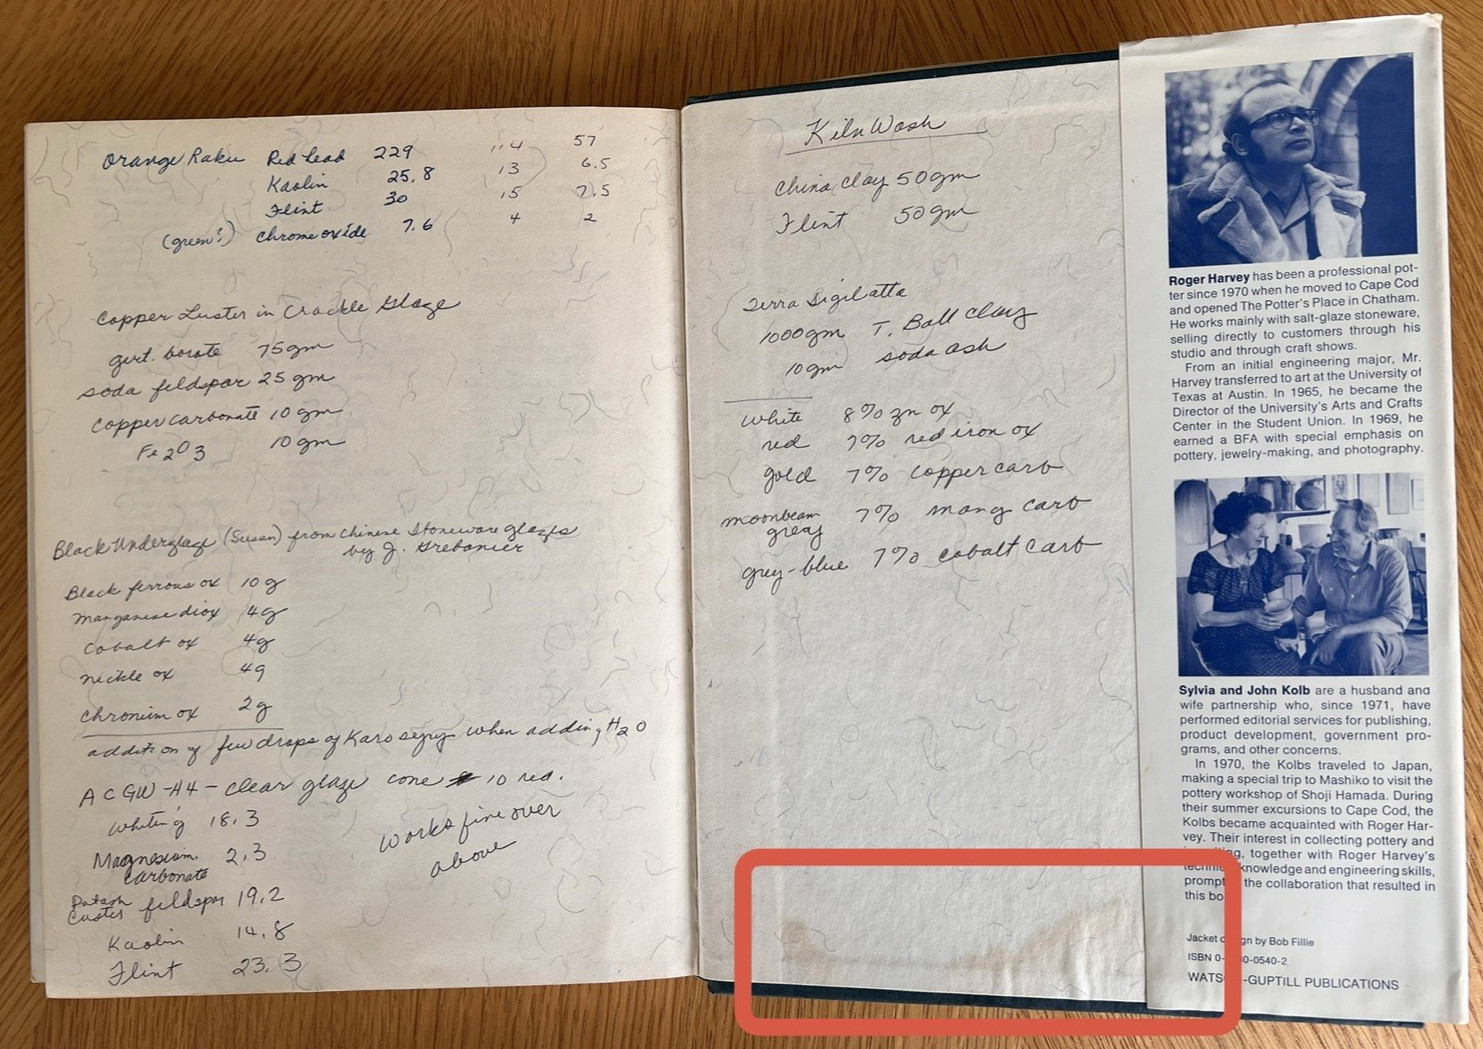 Orange Raku Red lead 229 114 57
Kaolin 25.8 13 6.5
Flint 30 15 7.5
(green?) chrome oxide 7.6 4 2
Copper Luster in Crackle Glaze
gert. borate 75 gm
soda feldspar 25 gm
copper carbonate 10 gm
Fe2O3 10 gm
Black Underglaze (Susan) from Chinese Stoneware glazes
by J. Grebanier
Black ferrous ox 10 g
Manganese diox 4g
Cobalt ox 4g
nickle ox 4g
chromium ox 2g
addition of few drops of Karo syrup when adding H2O
ACGW-A4 - clear glaze cone 10 red.
Whiting 18.3
works fine over
above
Magnesium
carbonate 2.3
Potash
Custer feldspar 19.2
Kaolin 14.8
Flint 23.3
Kiln Wash
China clay 50 gm
Flint 50 gm
Terra Sigilatta
1000 gm T. Ball clay
10 gm soda ash
white 8% zn ox
red 7% red iron ox
gold 7% copper carb
moonbeam
grey 7% mang carb
grey-blue 7% cobalt carb
Roger Harvey has been a professional pot-
ter since 1970 when he moved to Cape Cod
and opened The Potter's Place in Chatham.
He works mainly with salt-glaze stoneware,
selling directly to customers through his
studio and through craft shows.
From an initial engineering major, Mr.
Harvey transferred to art at the University of
Texas at Austin. In 1965, he became the
Director of the University's Arts and Crafts
Center in the Student Union. In 1969, he
earned a BFA with special emphasis on
pottery, jewelry-making, and photography.
Sylvia and John Kolb are a husband and
wife partnership who, since 1971, have
performed editorial services for publishing,
product development, government pro-
grams, and other concerns.
In 1970, the Kolbs traveled to Japan,
making a special trip to Mashiko to visit the
pottery workshop of Shoji Hamada. During
their summer excursions to Cape Cod, the
Kolbs became acquainted with Roger Har-
vey. Their interest in collecting pottery and
together with Roger Harvey's
knowledge and engineering skills,
the collaboration that resulted in
this
Jacket by Bob Fillie
ISBN
WATSON-GUPTILL PUBLICATIONS